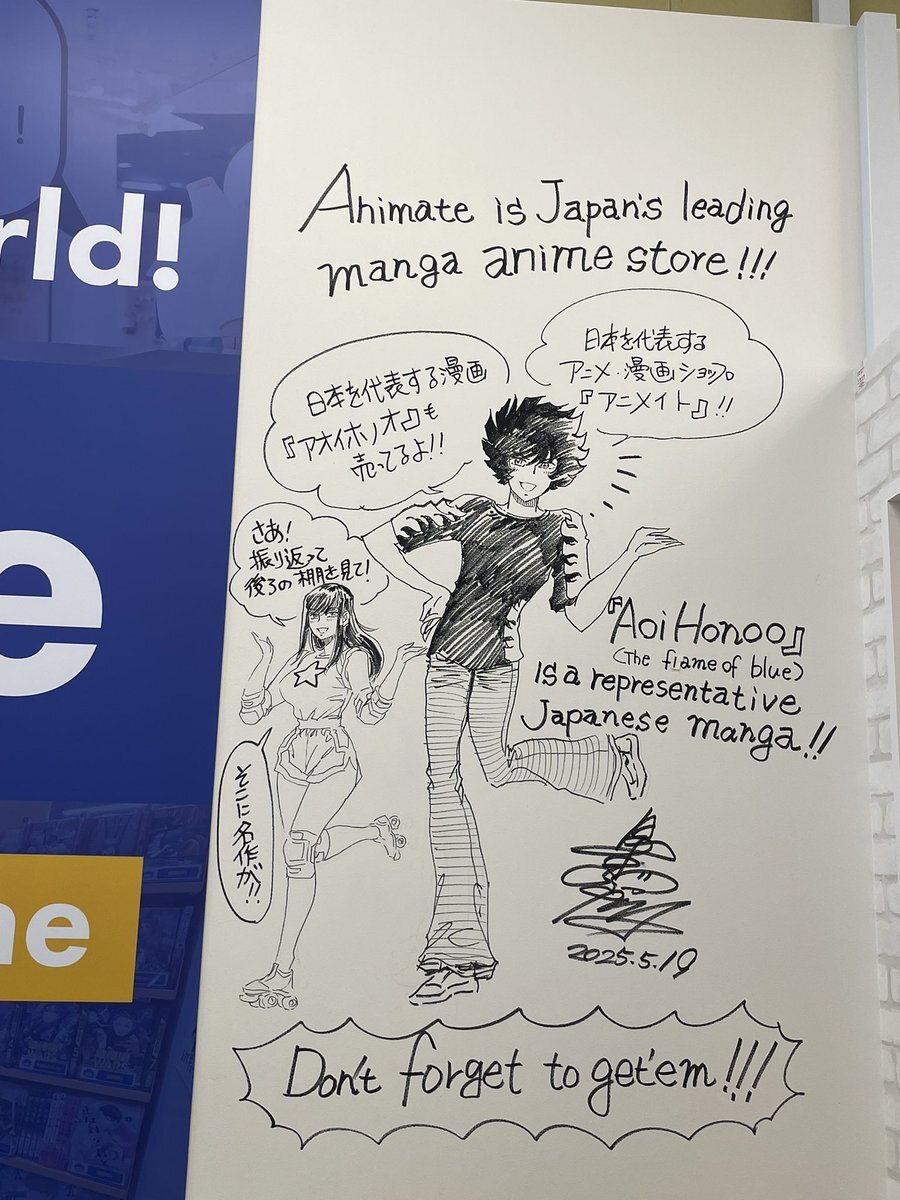 rld!
e
ne
Animate is Japan's leading
manga anime store!!!
日本を代表する
アニメ・漫画ショップ
『アニメイト』!!
日本を代表する漫画
『アオイホノオ』も
売ってるよ!!
さあ!
振り返って
後ろの棚を見て!
そこに名作が!!
『Aoi Honoo』
(The flame of blue)
is a representative
Japanese manga!!
2025.5.19
Don't forget to get'em!!!